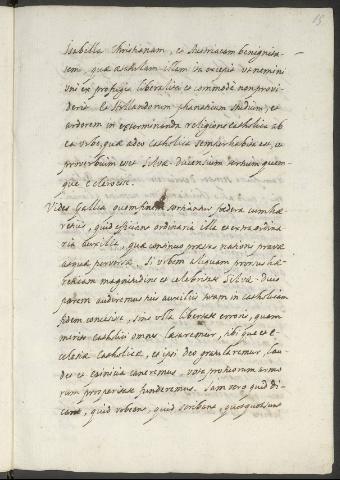 15
Isabella Christianam, et Austriacam benignita-
tem, quæ illam ita excepit ut nemini
uni ex profugis liberaliter et commodè non provi-
derit. et Hollandorum phanaticum studium, et
ardorem in exterminanda religione catholica ab
ea urbe, quæ adeo catholica semper habita est, ut
proverbium esset Silvæ-ducensium quem-
que clericum.
Vides Gallia quem finem sortiantur fœdera cum hæ-
reticis, quid efficiant ordinaria illa et extraordina-
ria auxilia, quæ continuò præstas nationi pravæ
atque perversæ, si urbem aliquam prorsus hæ-
reticam magnitudinis et celebritatis Silvæ-ducis
parem audiremus his auxiliis tuam in catholicam
fidem concessisse, sine ulla libertate erroris, quam
meritò catholici omnes lætaremur, tibique et ec-
clesiæ catholicæ, et ipsi deo gratularemur, lau-
des et cantica caneremus, vota pro tuorum armo-
rum prosperitate funderemus. Iam vero quid di-
cant, quid orbeant, quid scribant, quotquot sunt